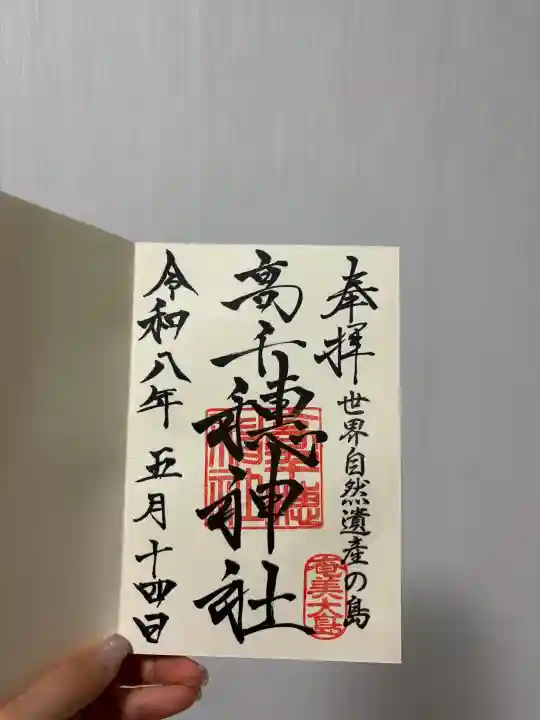 奉拝
世界自然遺産の島
奄美大島
高千穂神社
高千穂神社
令和八年 五月十四日